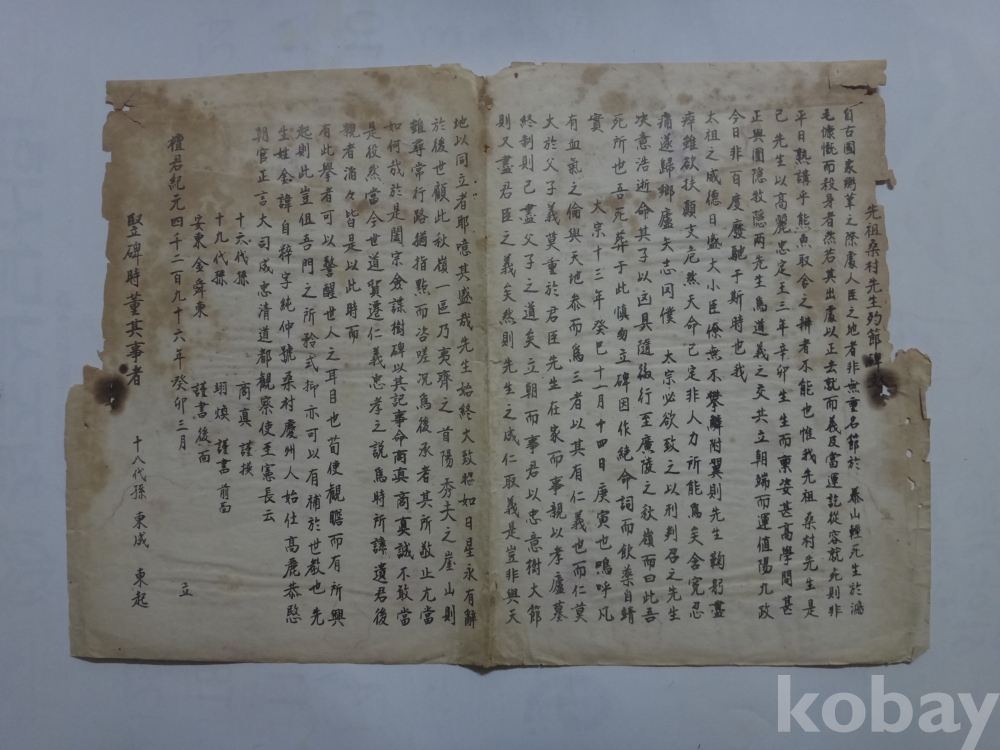 先祖桑村先生殉節碑
自古國家鼎革之際處人臣之地者非無重名節於泰山輕死生於鴻
毛慷慨而殺身者然若其出處以正去就而義及當運訖從容就死則非
平日熟講乎熊魚取舍之辨者不能也惟我先祖桑村先生是
已先生以高麗忠定王三年辛卯生生而稟姿甚高學問甚
正與圃隱牧隱兩先生爲道義之交共立朝端而運値陽九政
今日非百度廢馳于斯時也我
太祖之威德日盛大小臣僚無不攀鱗附翼則先生鞠躬盡
瘁雖欲扶顚支危然天命已定非人力所能爲矣含寃忍
痛遂歸鄉廬矢志罔僕 太宗必欲致之以刑判召之先生
決意浩逝命其子以凶具隨後行至廣陵之秋嶺而曰此吾
死所也吾死葬于此愼勿立碑因作絶命詞而飮藥自靖
實 太宗十三年癸巳十一月十四日庚寅也嗚呼凡
有血氣之倫與天地參而爲三者以其有仁義也而仁莫
大於父子義莫重於君臣先生在家而事親以孝廬墓
終制則已盡父子之道矣立朝而事君以忠意樹大節
則又盡君臣之義矣然則先生之成仁取義是豈非與天
地以同立者耶噫其盛哉先生始終大致昭如日星永有辭
於後世顧此秋嶺一區乃夷齊之首陽秀夫之崖山則
雖尋常行路猶指點而咨嗟况爲後承者其所敬止尤當
如何哉於是闔宗僉謀樹碑以其記事命商眞商眞誠不敢當
是役然當今世道貿遷仁義忠孝之說爲時所諱遺君後
親者滔々皆是以此時而
有此擧者可以警醒世人之耳目也苟使觀瞻而有所興
起則此豈但吾門之所矜式抑亦可以有補於世敎也先
生姓金諱自粹字純仲號桑村慶州人始仕高麗恭愍
朝官正言大司成忠淸道都觀察使至憲長云
十六代孫 商眞 謹撰
十九代孫 珝煥 謹書前面
安東金舜東 謹書後面
檀君紀元四千二百九十六年癸卯三月 立
竪碑時董其事者 十八代孫 東成 東起
kobay